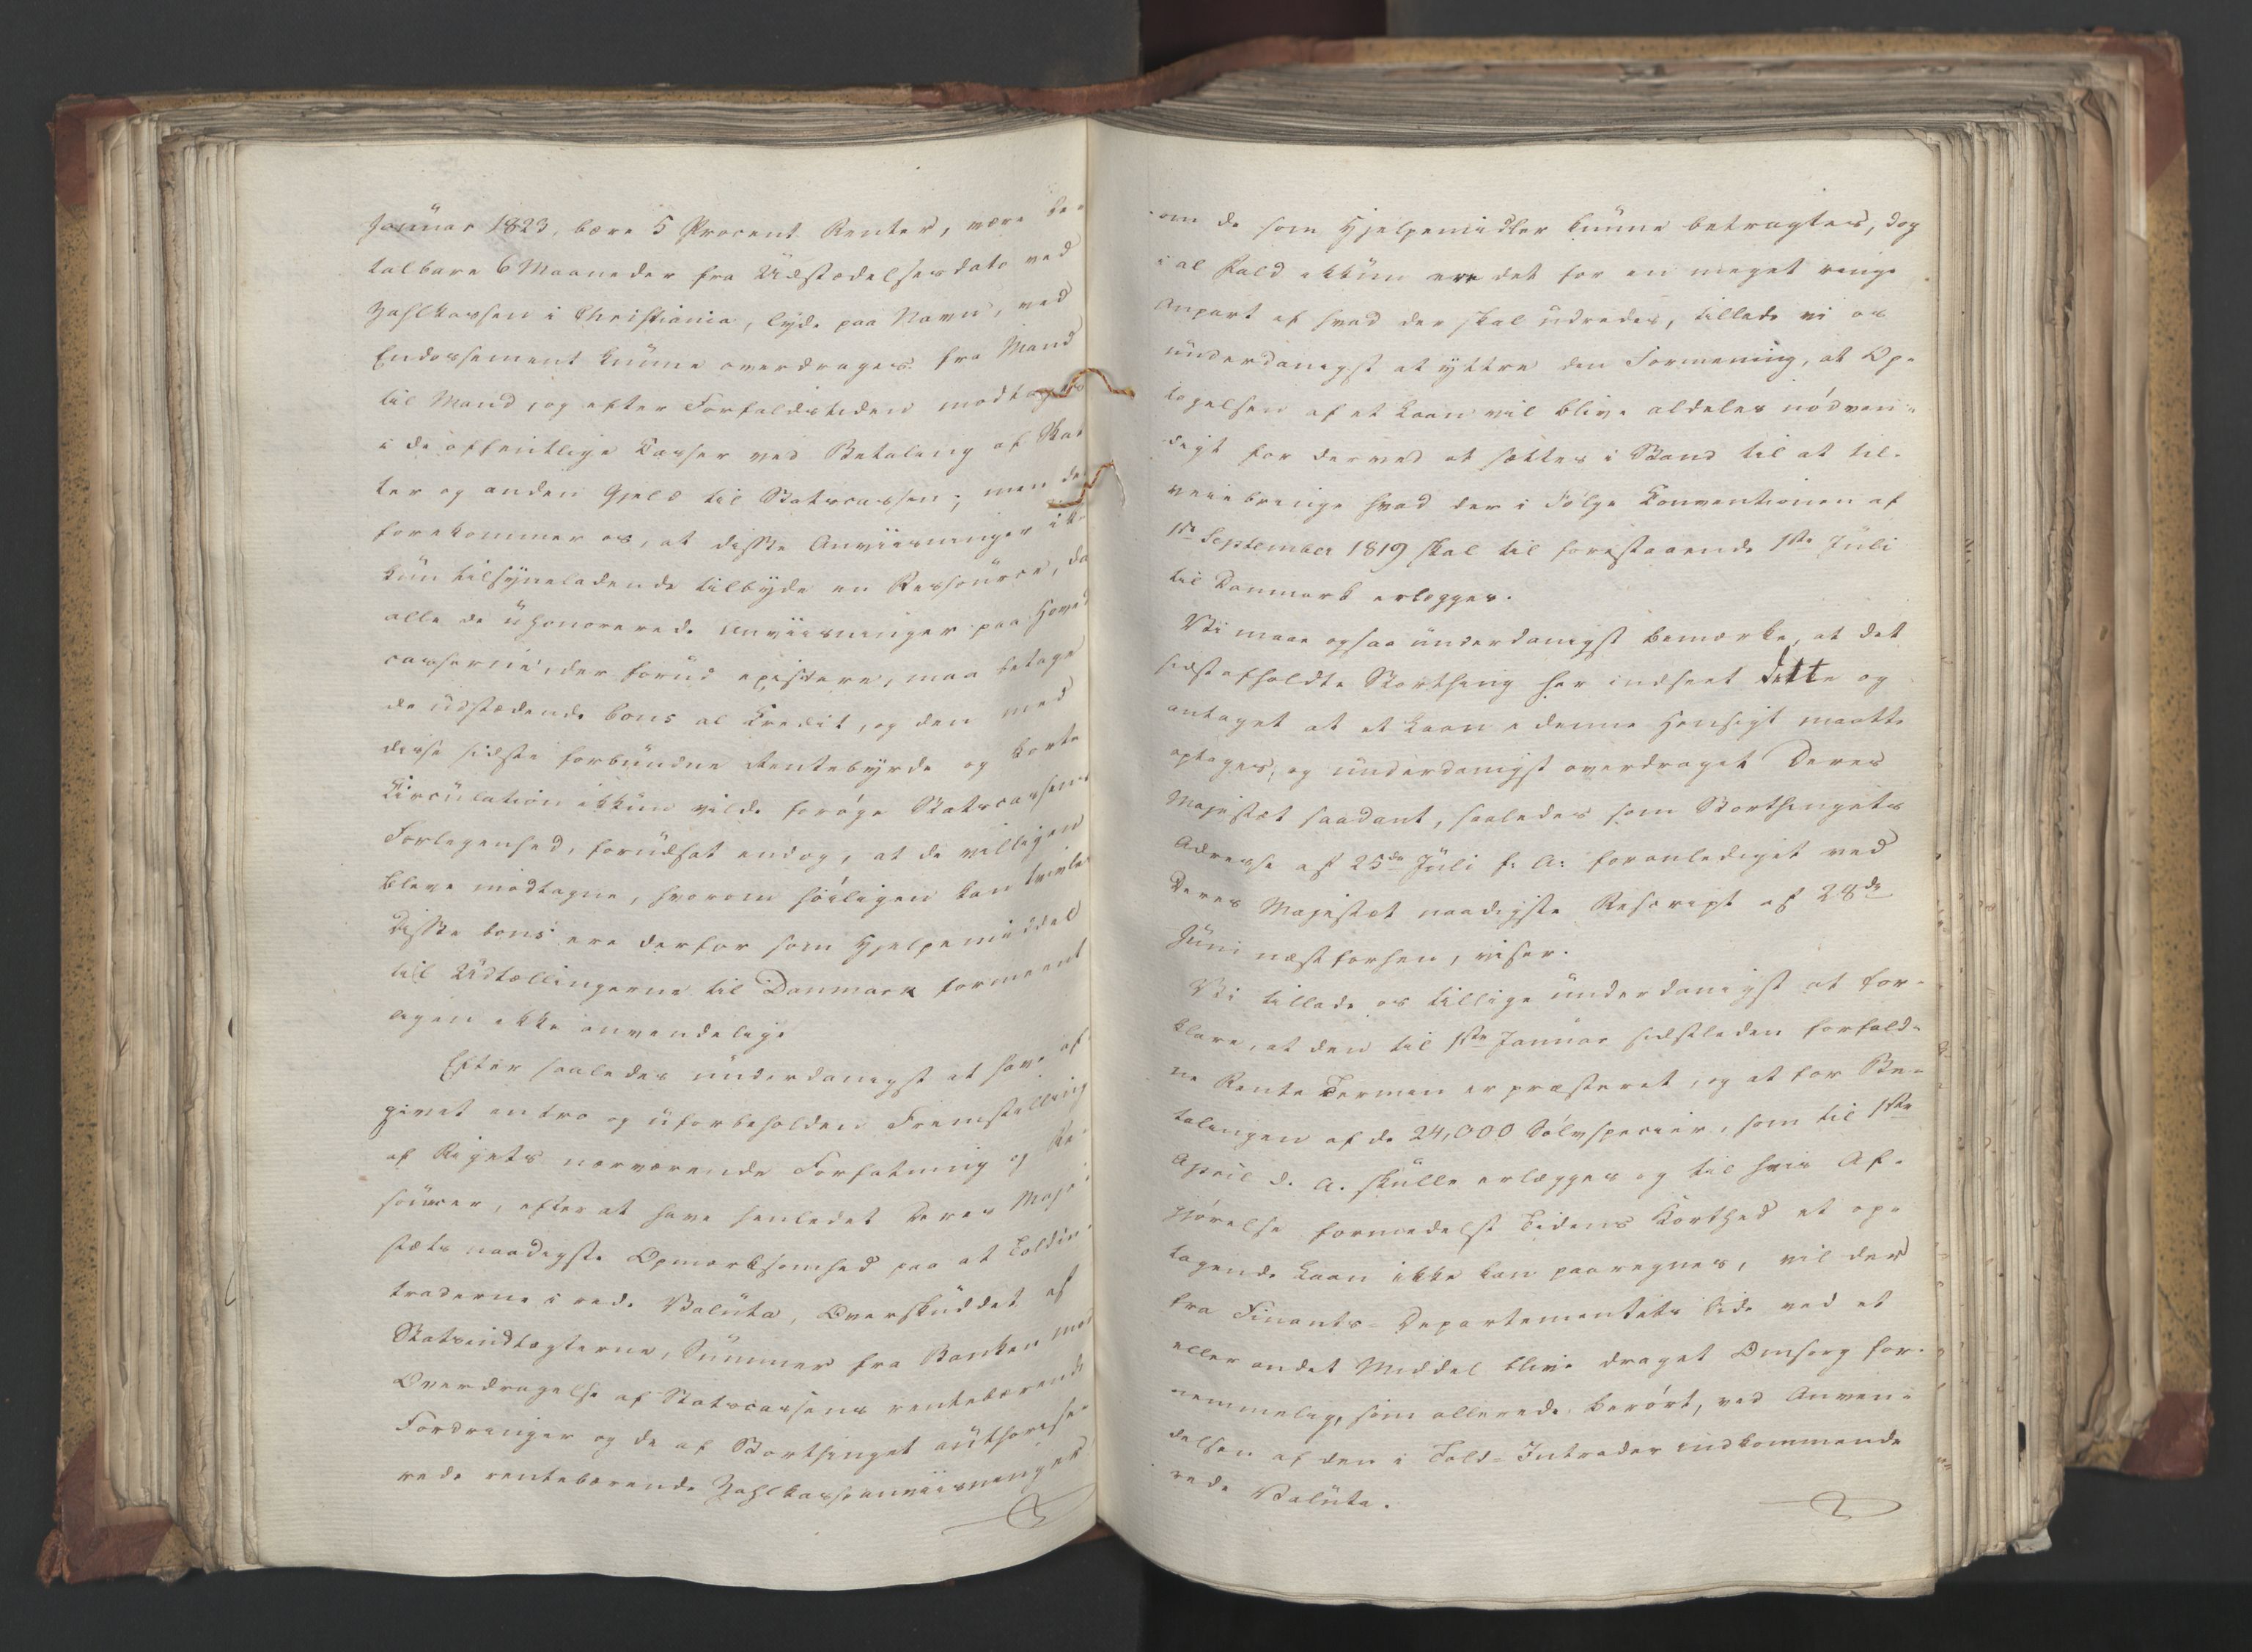 Januar 1823, bære 5 Procent Renter, være be-
talbare 6 Maaneder fra Udstædelsesdato ved
Zahlkassen i Christiania, lyde paa Navn, ved
Endossement kunne overdrages fra Mand
til Mand, og efter Forfaldstiden modtages
i de offentlige Casser ved Betaling af Skat-
ter og anden Gjeld til Statscassen; men det
forekommer os, at disse Anviisninger ik-
kun tilsyneladende tilbyde en Ressource, da
alle de uhonorerede Anviisninger paa Hoved
casserne, der forud existere, maa betage
de udstædende bons al Credit, og den med
disse sidste forbundne Rentebyrde og korte
Circulation ikkun vilde forøge Statscassens
Forlegenhed, forudsat endog, at de villigen
bleve modtagne, hvorom höiligen kan tvivles
Disse bons ere derfor som Hjelpemiddel
til Udtællingerne til Danmark formeent
ligen ikke anvendelige
Efter saaledes underdanigst at have af
givet en tro og uforbeholden Fremstilling
af Rigets nærværende Forfatning og Re-
sourcer, efter at have henledet Deres Maje-
stæts naadigste Opmærksomhed paa at Toldin-
traderne i rede Valuta, Overskuddet af
Statsindtægterne, Summer fra Banken mod
Overdragelse af Statscassens rentebærende
Fordringer og de af Storthinget authorise-
rede rentebærende Zahlkasseanviisninger
om de som Hjelpemidler kunne betragtes, dog
i al Fald ikkun ere det for en meget ringe
Anpart af hvad der skal udredes, tillade vi os
underdanigst at yttre den Formening, at Op-
tagelsen af et Laan vil blive aldeles nödven-
digt for derved at sættes i Stand til at til-
veiebringe hvad der i Følge Conventionen af
1ste September 1819 skal til forestaaende 1ste Juli
til Danmark erlægges.
Vi maae ogsaa underdanigst bemærke, at det
sidstafholdte Storthing har indseet dette og
antaget at et Laan i denne Hensigt maatte
optages, og underdanigst overdraget Deres
Majestæt saadant, saaledes som Storthingets
Adresse af 25de Juli f. A. foranlediget ved
Deres Majestæt naadigste Rescript af 28de
Juni næstforhen, viser.
Vi tillade os tillige underdanigst at for-
klare, at den til 1ste Januar sidstleden forfald-
ne Rente Termin er præsteret, og at for Be-
talingen af de 24,000 Sölvspecier, som til 1ste
April d. A. skulle erlægges og til hvis Af-
gjörelse formedelst Tidens Korthed et op-
tagende Laan ikke kan paaregnes, vil der
fra Finants-Departementets Side ved et
eller andet Middel blive draget Omsorg for.
nemmelig, som allerede berört, ved Anven-
delsen af den i Told-Intrader indkommende
rede Valuta.